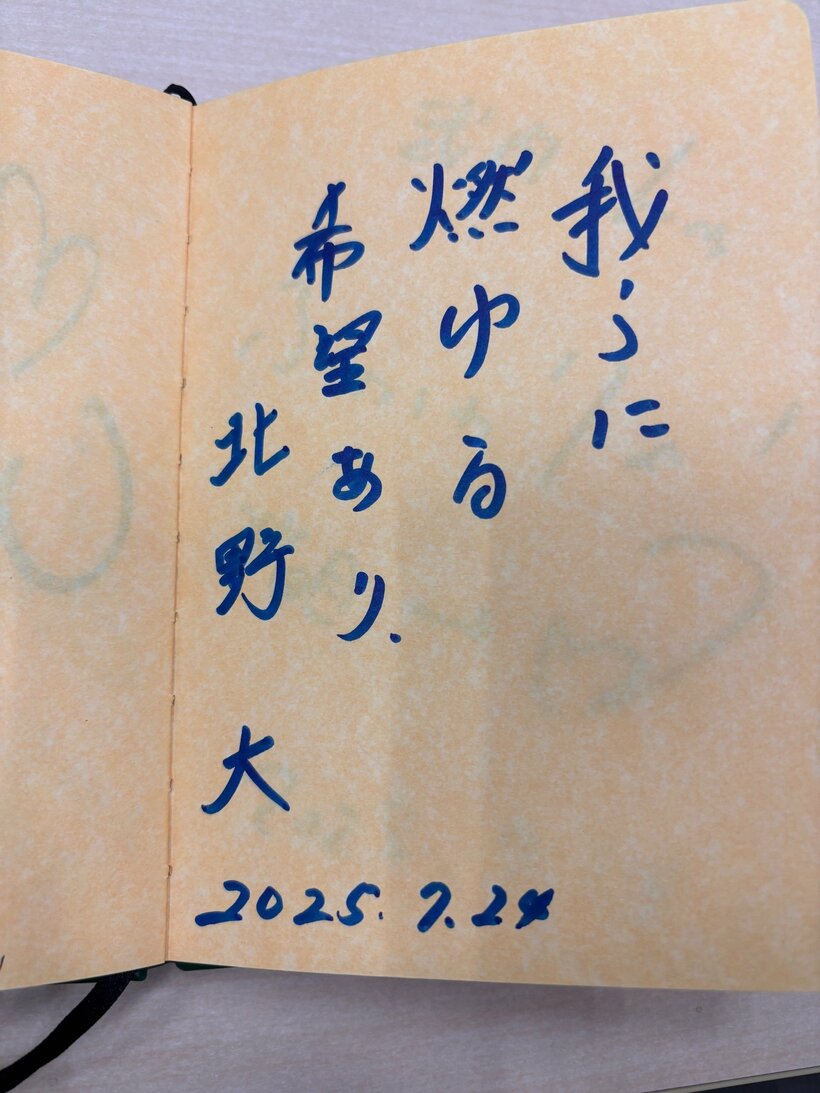 我らに
燃ゆる
希望あり.
北野 大
2025.7.24